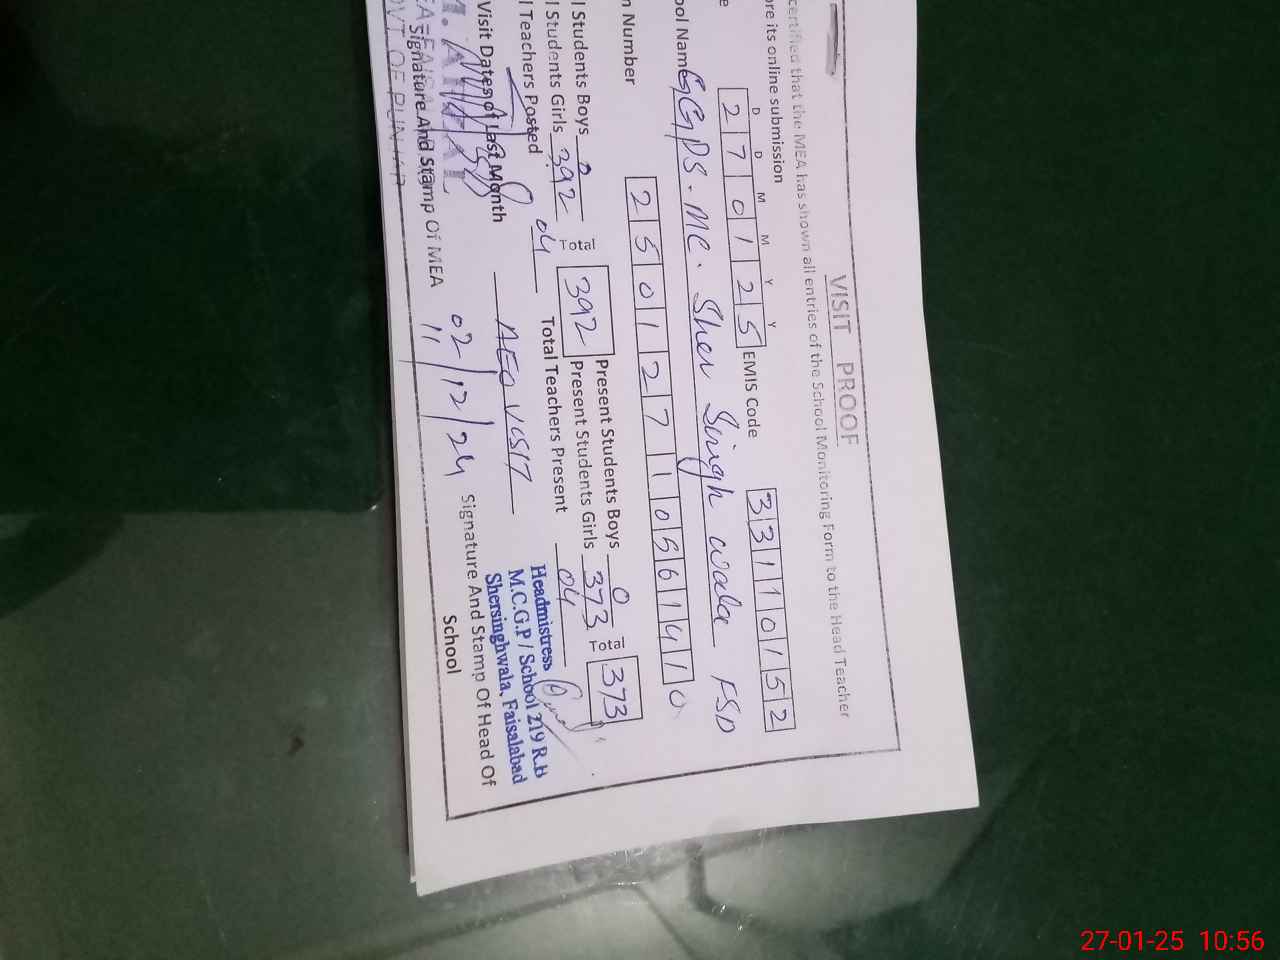 VISIT PROOF
certified that the MEA has shown all entries of the School Monitoring Form to the Head Teacher
ore its online submission
D D M M Y Y
e 2 7 0 1 2 5 EMIS Code 3 3 1 1 0 1 5 2
ool Name GGPS. MC. Sher Singh wala FSD
n Number 2 5 0 1 2 7 1 0 5 6 1 4 1 0
l Students Boys 0 Total 392 Present Students Boys 0 Total 373
l Students Girls 392 Present Students Girls 373
l Teachers Posted 04 Total Teachers Present 04
Visit Dates of Last Month AEO VISIT
02/12/24
11
Headmistress
M.C.G.P / School 219 R.B
Shersinghwala, Faisalabad
Signature And Stamp Of MEA
Signature And Stamp Of Head Of
School
27-01-25 10:56